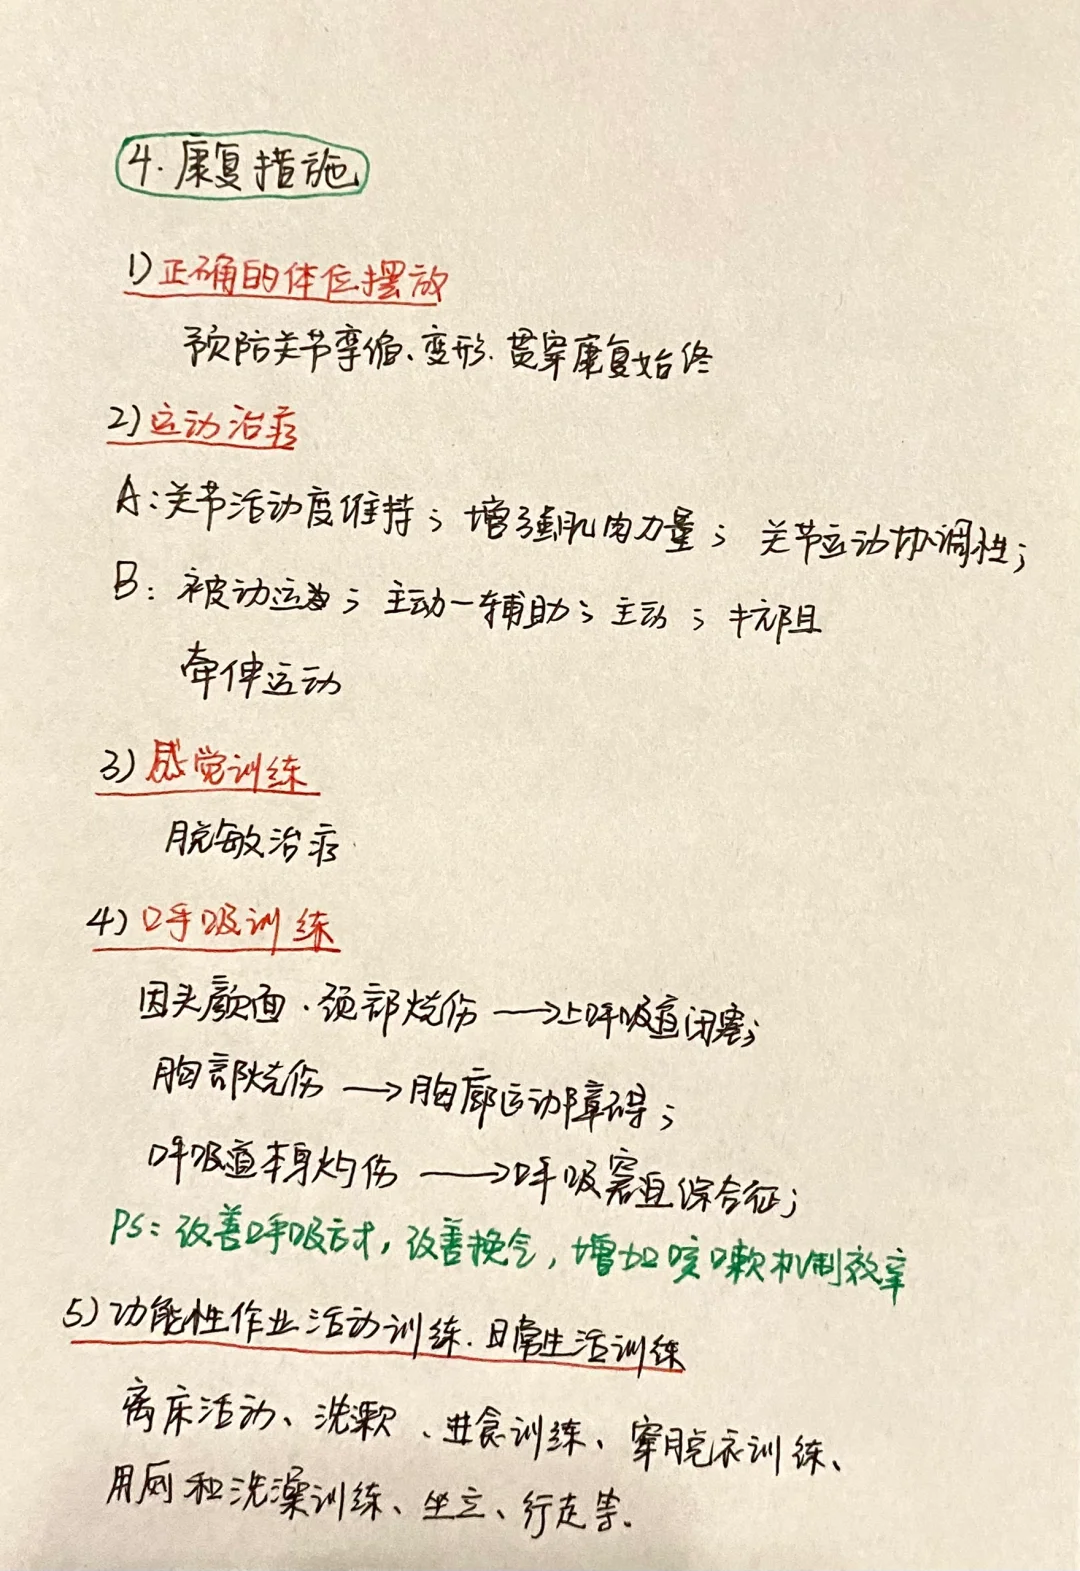 4. 康复措施
1) 正确的体位摆放
预防关节挛缩、变形. 贯穿康复始终
2) 运动治疗
A: 关节活动度维持; 增强肌肉力量; 关节运动协调性;
B: 被动运动; 主动一辅助; 主动; 抗阻
牵伸运动
3) 感觉训练
脱敏治疗
4) 呼吸训练
因头颜面.颈部烧伤 → 上呼吸道闭塞;
胸部烧伤 → 胸廓运动障碍;
呼吸道本身灼伤 → 呼吸窘迫综合征;
PS: 改善呼吸方式, 改善换气, 增加咳嗽机制效率
5) 功能性作业活动训练. 日常生活训练
离床活动、洗漱、进食训练、穿脱衣训练、
用厕和洗澡训练、坐立、行走等.